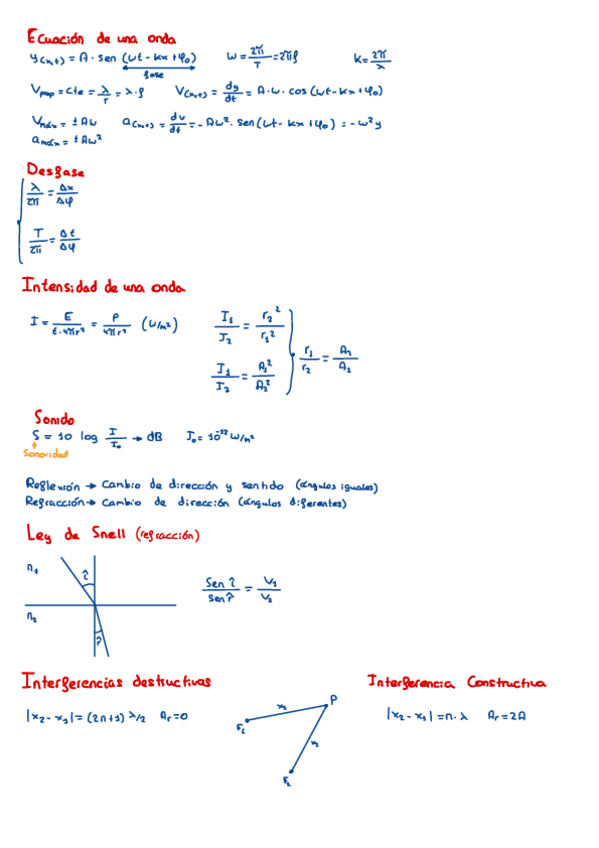 Ecuación de una onda
y(x,t) = A · sen (ωt - kx + φ₀) ω = 2π/T = 2πf k = 2π/λ
fase
Vprop = cte = λ/T = λ·f V(x,t) = dy/dt = A·ω·cos (ωt - kx + φ₀)
Vmáx = ± Aω a(x,t) = dv/dt = - Aω²· sen (ωt - kx + φ₀) = -ω²y
amáx = ± Aω²
Desfase
λ/2π = Δx/Δφ
T/2π = Δt/Δφ
Intensidad de una onda
I = E/t·4πr² = P/4πr² (W/m²) I₁/I₂ = r₂²/r₁²
I₁/I₂ = A₁²/A₂²
Sonido
S = 10 log I/I₀ → dB I₀ = 10⁻¹² W/m²
Sonoridad
Reflexión → Cambio de dirección y sentido (ángulos iguales)
Refracción → Cambio de dirección (ángulos diferentes)
Ley de Snell (refracción)
n₁
î
sen î / sen r̂ = V₁/V₂
n₂
r̂
Interferencias destructivas
Interferencia Constructiva
P
|x₂ - x₁| = (2n+1) λ/2 Ar = 0
|x₂ - x₁| = n·λ Ar = 2A